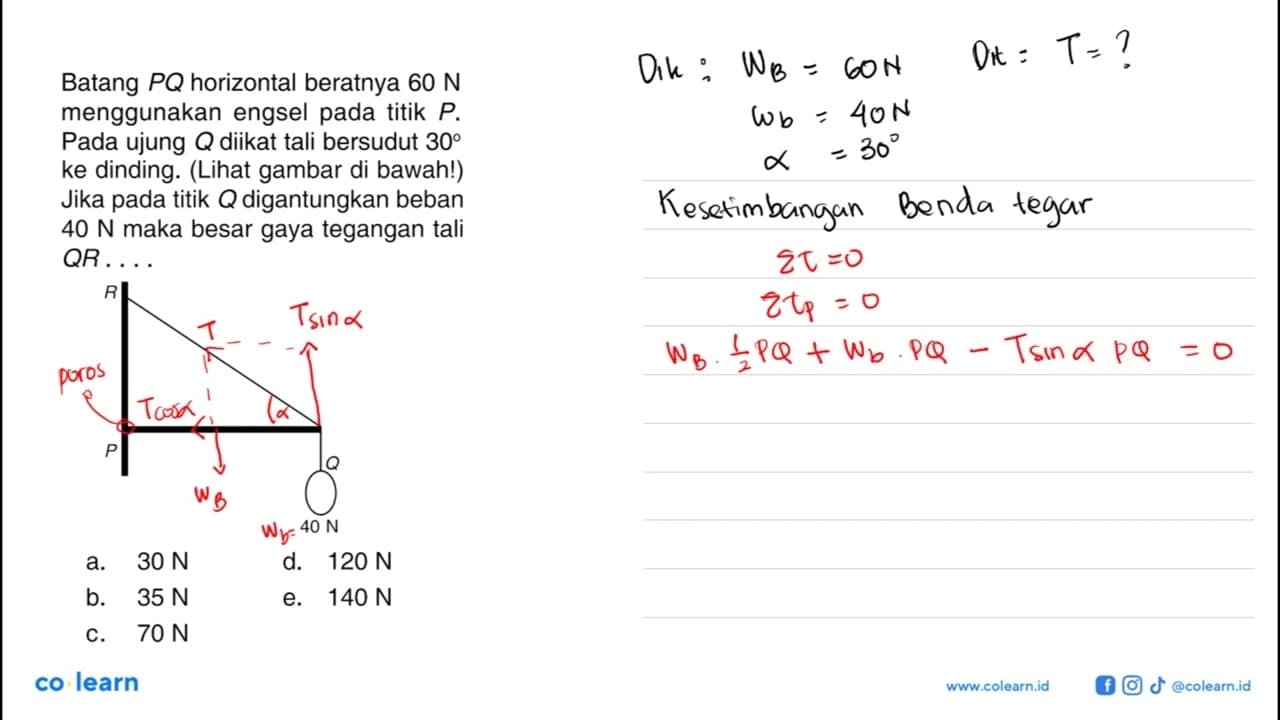 Batang PQ horizontal beratnya 60 N
menggunakan engsel pada titik P.
Pada ujung Q diikat tali bersudut 30°
ke dinding. (Lihat gambar di bawah!)
Jika pada titik Q digantungkan beban
40 N maka besar gaya tegangan tali
QR . . . .
R
T
T sin α
poros
T cos α
α
P
Q
W_B
W_b = 40 N
a. 30 N
d. 120 N
b. 35 N
e. 140 N
c. 70 N
Dik : W_B = 60 N
Dit : T = ?
W_b = 40 N
α = 30°
Kesetimbangan Benda tegar
Στ = 0
Στ_P = 0
W_B . 1/2 PQ + W_b . PQ - T sin α PQ = 0
co learn
www.colearn.id
@colearn.id